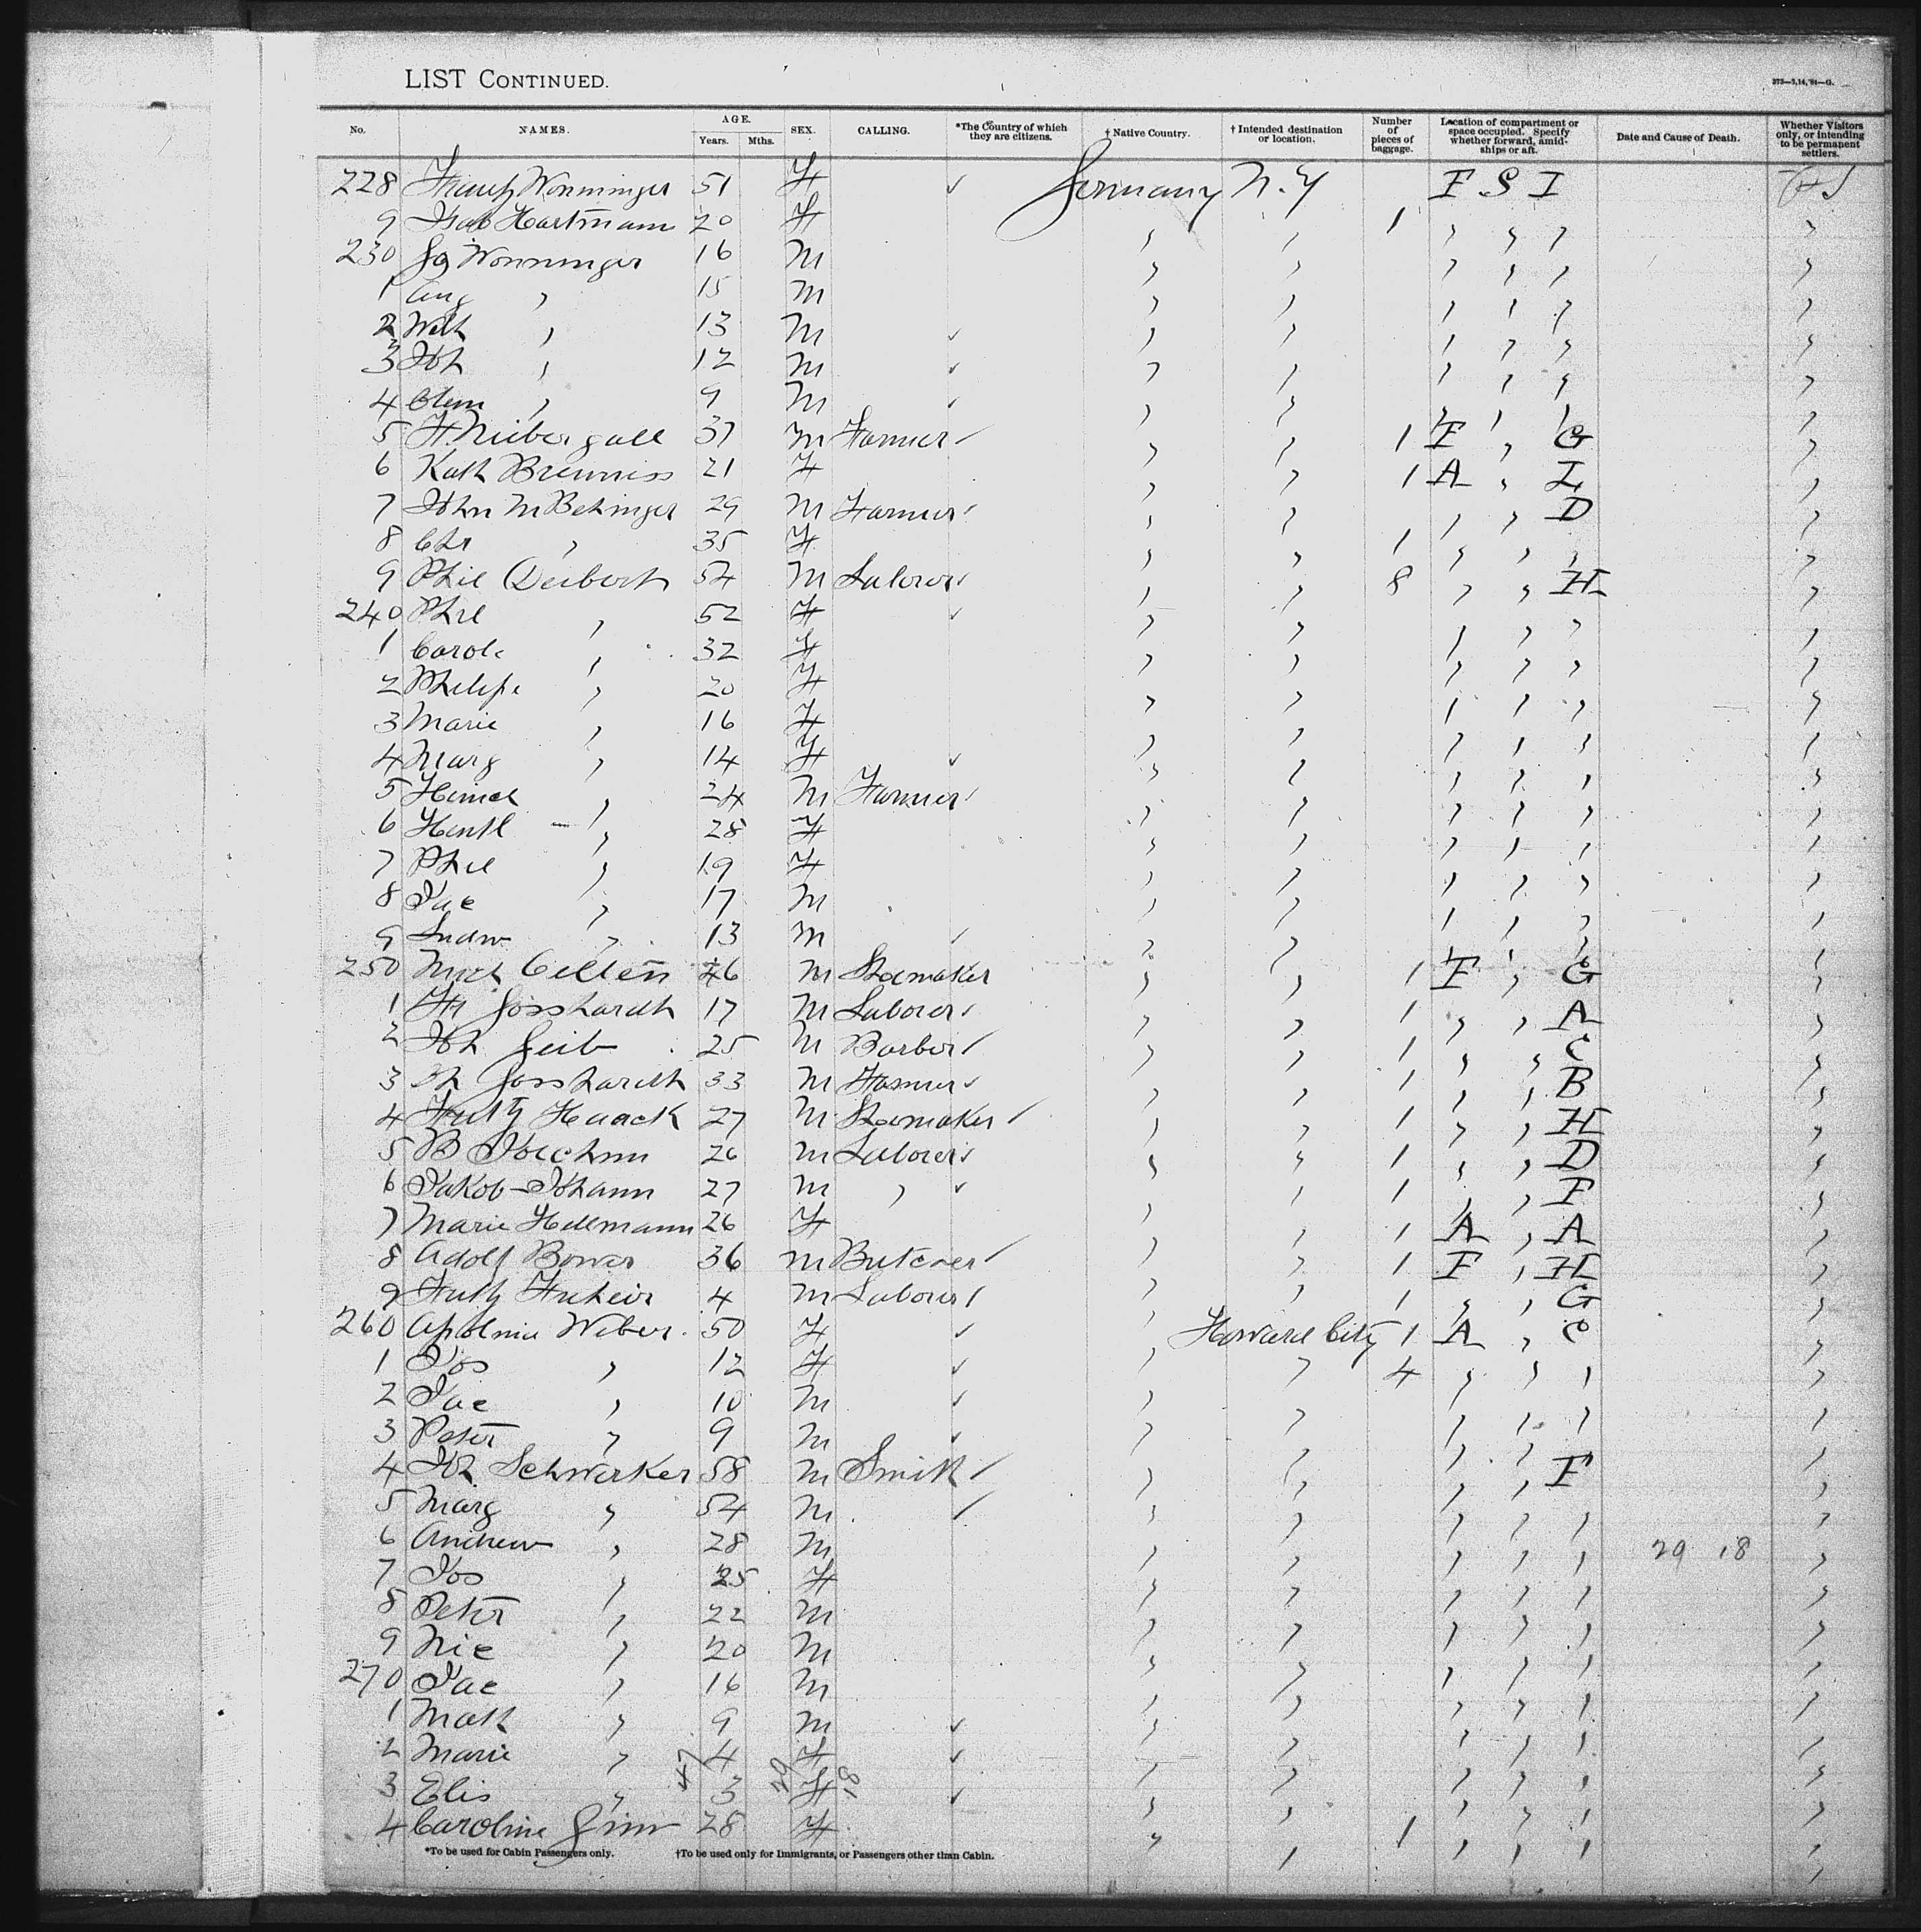 LIST CONTINUED.
273—3,14,'84—G.
No. NAMES. AGE. Years. Mths. SEX. CALLING. *The Country of which they are citizens. † Native Country. † Intended destination or location. Number of pieces of baggage. Location of compartment or space occupied. Specify whether forward, amidships or aft. Date and Cause of Death. Whether Visitors only, or intending to be permanent settlers.
228 Wonninger 51 F ✓ Germany N.Y F S I
9 Hartmann 20 F 1 " " " " " "
230 Wonninger 16 M " " " " " "
1 Aug " 15 M " " " " " "
2 Wilh " 13 M ✓ " " " " " "
3 Joh " 12 M ✓ " " " " " "
4 Clem " 9 M ✓ " " " " " "
5 H Niebergall 37 M Farmer ✓ " " 1 F " G "
6 Kath 21 F " " 1 A " I "
7 John M Betzinger 29 M Farmer ✓ " " " " D "
8 Chr " 35 F " " 1 " " " "
9 Phil Deibert 54 M Laborer ✓ " " 8 " " H "
240 Phil " 52 F ✓ " " " " " "
1 Carole " 32 F " " " " " "
2 Philipe " 20 F " " " " " "
3 Marie " 16 F " " " " " "
4 Marg " 14 F ✓ " " " " " "
5 Heinch " 24 M Farmer ✓ " " " " " "
6 " 28 F " " " " " "
7 Phil " 19 F " " " " " "
8 Jac " 17 M " " " " " "
9 Ludw " 13 M ✓ " " " " " "
250 Mich 46 M Shoemaker " " 1 F " G "
1 Fr Gosshardt 17 M Laborer ✓ " " 1 " " A "
2 Joh Geib 25 M Barber ✓ " " 1 " " C "
3 Gosshardt 33 M Farmer ✓ " " 1 " " B "
4 Fritz Haack 27 M Shoemaker ✓ " " 1 " " H "
5 B 26 M Laborer ✓ " " 1 " " D "
6 Jakob Johann 27 M " ✓ " " 1 " " F "
7 Marie Hellmann 26 F " " 1 A " A "
8 Adolf 36 M Butcher ✓ " " 1 F " H "
9 Fritz 4 M Laborer ✓ " " 1 " " G "
260 Apolonia Weber 50 F ✓ " Howard City 1 A " C "
1 Jos " 12 F ✓ " " 4 " " " "
2 Jac " 10 M ✓ " " " " " "
3 Peter " 9 M ✓ " " " " " "
4 Joh Schwerker 58 M Smith ✓ " " " " F "
5 Marg " 54 M ✓ " " " " " "
6 Andrew " 28 M " " " " " 29 18 "
7 Jos " 25 F " " " " " "
8 Peter " 22 M " " " " " "
9 Nic " 20 M " " " " " "
270 Jac " 16 M " " " " " "
1 Math " 9 M ✓ " " " " " "
2 Marie " 4 F ✓ " " " " " "
3 Elis " 47 3 29 F 18 ✓ " " " " " "
4 Caroline 28 F " " 1 " " " "
*To be used for Cabin Passengers only. †To be used only for Immigrants, or Passengers other than Cabin.